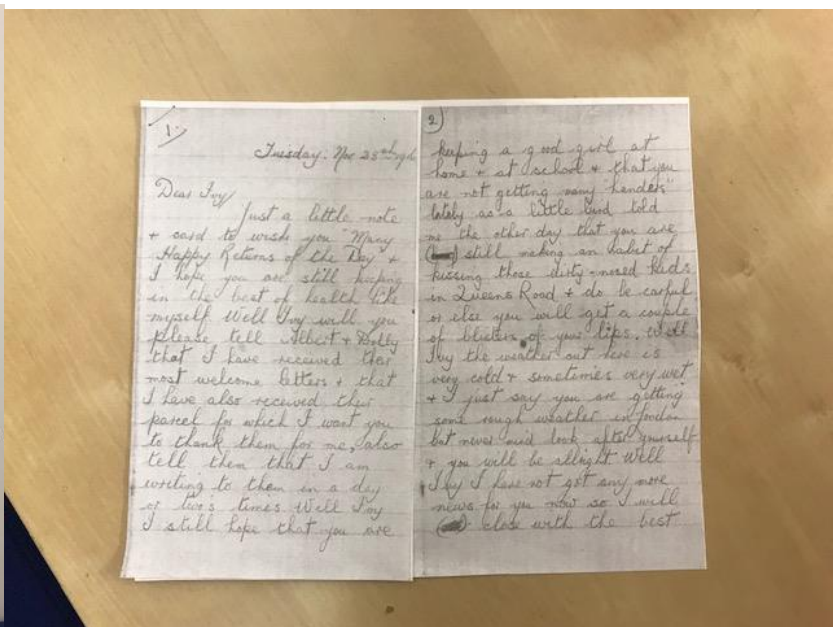 1.
Tuesday. Nov 25th
Dear Ivy
Just a little note
+ card to wish you "Many
Happy Returns of the Day" +
I hope you are still keeping
in the best of health like
myself Well Ivy will you
please tell Albert + Dolly
that I have received their
most welcome letters + that
I have also received their
parcel for which I want you
to thank them for me, also
tell them that I am
writing to them in a day
or two's times Well Ivy
I still hope that you are
2
keeping a good girl at
home + at school + that you
are not getting many "handers"
lately as a little bird told
me the other day that you are
still making an habit of
kissing those dirty-nosed kids
in Queens Road + do be carful
or else you will get a couple
of blisters of your lips. Well
Ivy the weather out here is
very cold + sometimes very wet
+ I just say you are getting
some rough weather in London
but never mind look after yourself
+ you will be allright Well
Ivy I have not got any more
news for you now so I will
close with the best